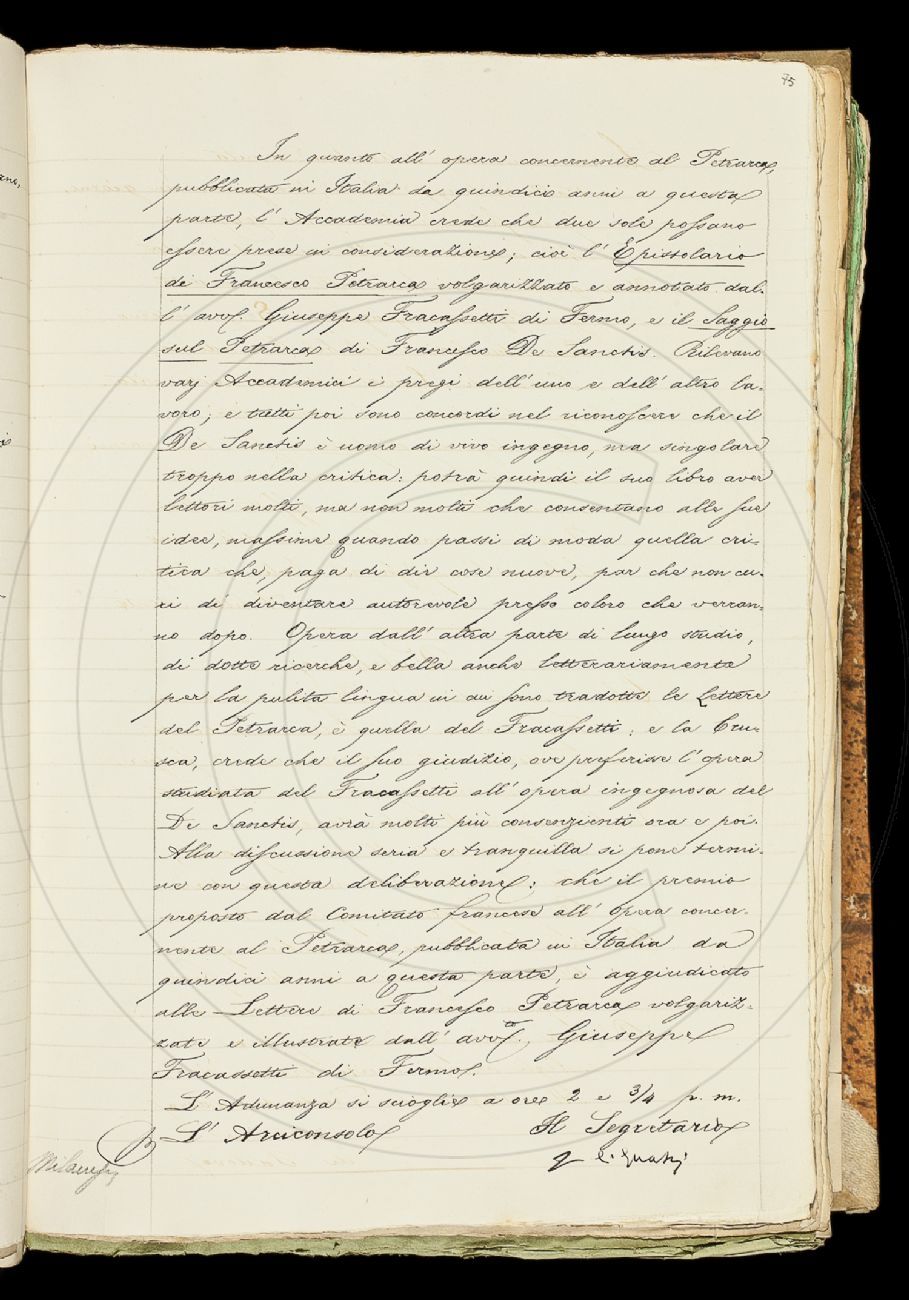 75
In quanto all' opera concernente al Petrarca,
pubblicata in Italia da quindici anni a questa
parte, l' Accademia crede che due sole possano
essere prese in considerazione; cioè l' Epistolario
di Francesco Petrarca volgarizzato e annotato dal-
l' avv. Giuseppe Fracassetti di Fermo, e il Saggio
sul Petrarca di Francesco De Sanctis. Rilevano
varj Accademici i pregi dell' uno e dell' altro la-
voro; e tutti poi sono concordi nel riconoscere che il
De Sanctis è uomo di vivo ingegno, ma singolare
troppo nella critica: potrà quindi il suo libro aver
lettori molti, ma non molti che consentano alle sue
idee, massime quando passi di moda quella cri-
tica che, paga di dir cose nuove, par che non cu-
ri di diventare autorevole presso coloro che verran-
no dopo. Opera dall' altra parte di lungo studio,
di dotte ricerche, e bella anche letterariamente
per la pulita lingua in cui sono tradotte le Lettere
del Petrarca, è quella del Fracassetti; e la Cru-
sca, crede che il suo giudizio, ove preferisse l' opera
studiata del Fracassetti all' opera ingegnosa del
De Sanctis, avrà molti più consenzienti ora e poi.
Alla discussione seria e tranquilla si pone termi-
ne con questa deliberazione; che il premio
proposto dal Comitato francese all' opera concer-
nente al Petrarca, pubblicata in Italia da
quindici anni a questa parte, è aggiudicato
alle Lettere di Francesco Petrarca volgariz-
zate e illustrate dall' avv.to Giuseppe
Fracassetti di Fermo.
L' Adunanza si scioglie a ore 2 e 3/4 p. m.
L' Arciconsolo Il Segretario